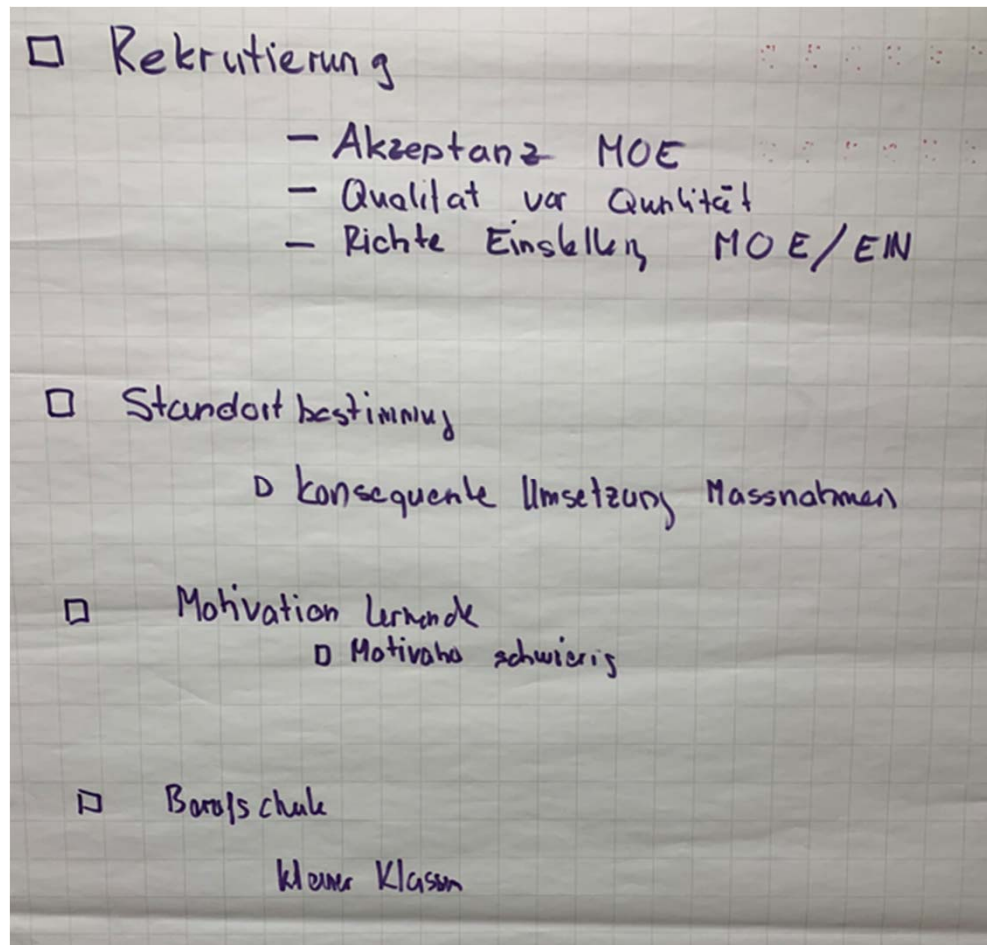 Rekrutierung
- Akzeptanz MOE
- Qualitat vor Qunlität
- Richte Einstellen MOE/EIN
Standort bestimmung
konsequente Umsetzung Massnahmen
Motivation lernende
Motivatio schwierig
Berufschule
kleiner Klassen